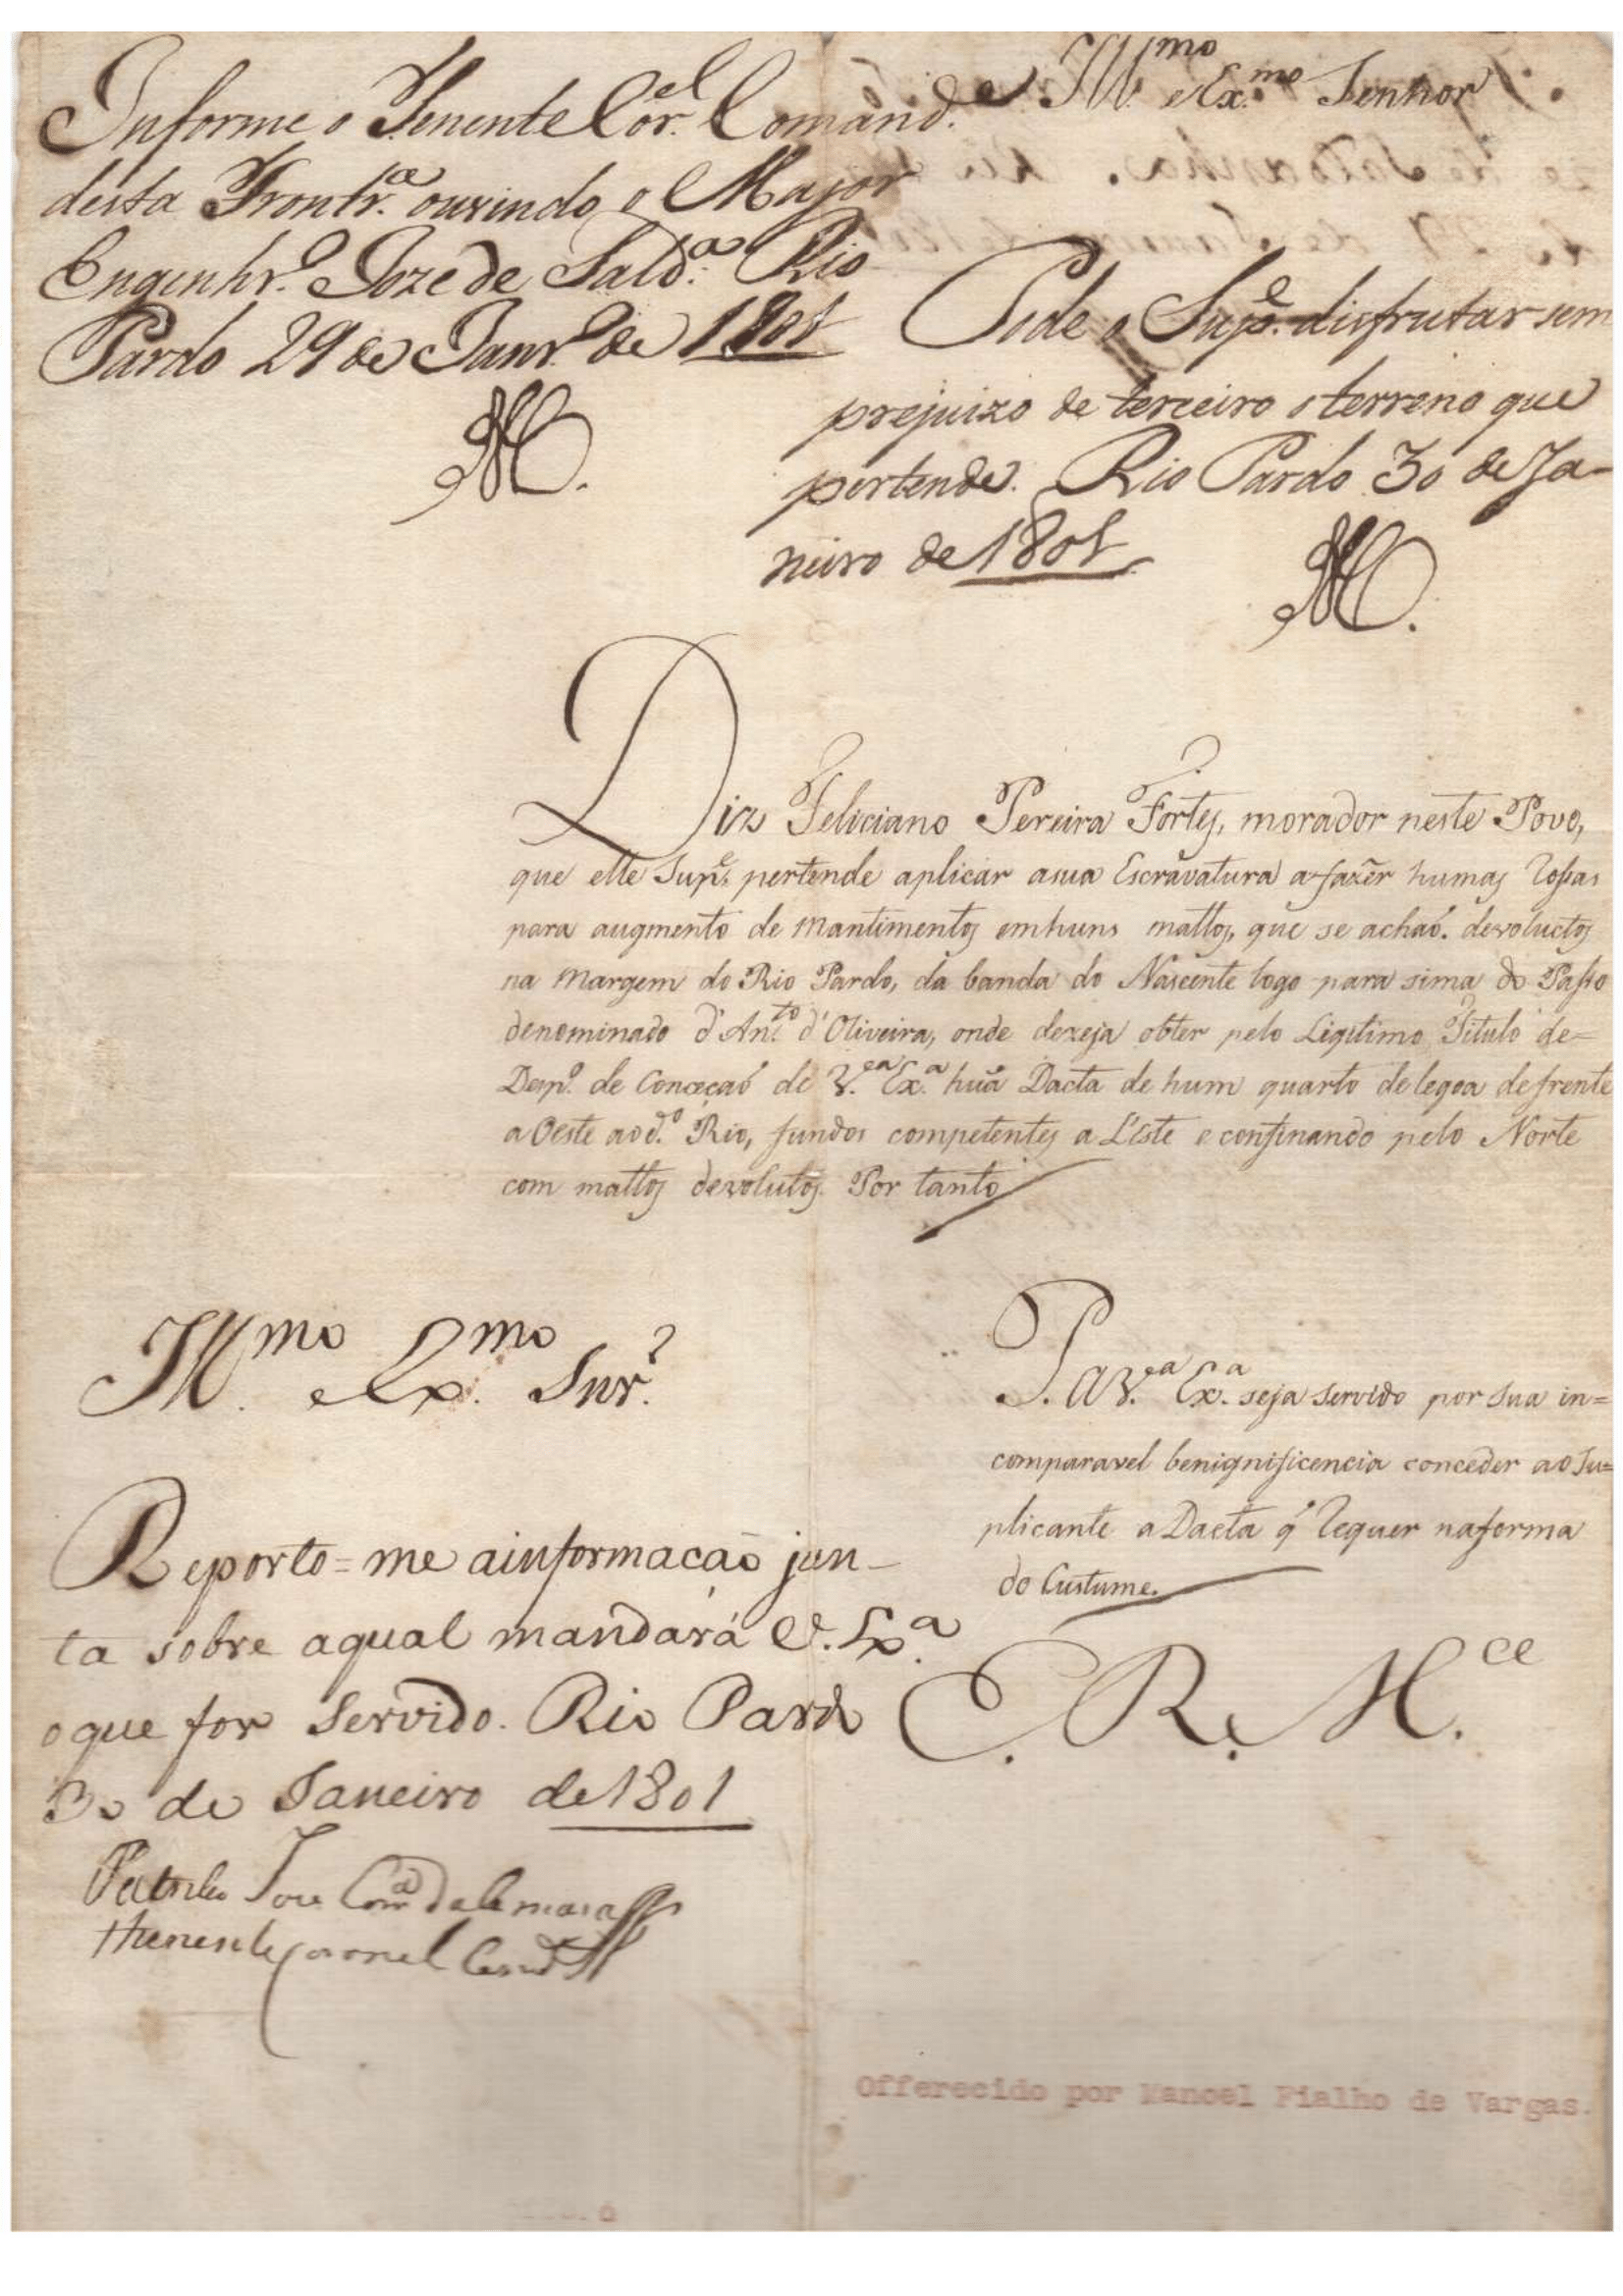 Informe o Tenente Cor.el Comand.e
desta Front.ra ouvindo o Major
Engenhr.o Joze de Sald.a Rio
Pardo 29 de Janr.o de 1801
Ill.mo e Ex.mo Senhor
Pode o Sup.e disfrutar sem
prejuizo de terceiro o terreno que
pertende. Rio Pardo 30 de Ja-
neiro de 1801
Diz Feliciano Pereira Fortes, morador neste Povo,
que elle Sup.e pertende aplicar a sua Escravatura a fazer humas Rossas
para augmento de Mantimentos em huns mattos, que se achaó devoluctos
na Margem do Rio Pardo, da banda do Nascente logo para sima do Passo
denominado d'Ant.o d'Oliveira, onde dezeja obter pelo Ligitimo Titulo de=
Desp.o de Conceçaó de V.ea Ex.a huã Dacta de hum quarto de legoa de frente
a Oeste ao d.o Rio, fundos competentes a Léste e confinando pelo Norte
com mattos devolutos. Por tanto
P. a V.ea Ex.a seja servido por sua in=
comparavel benignificencia conceder ao Su=
plicante a Dacta q' requer na forma
do Custume.
E. R. M.ce
Ill.mo e Ex.mo Snr.
Reporto=me a informacaõ jun-
ta sobre a qual mandará V. Ex.a
o que for Servido. Rio Pardo
30 de Janeiro de 1801
Patricio Joze Corr.a da Camara
Thenente Coronel Comd.e
Offerecido por Manoel Fialho de Vargas.